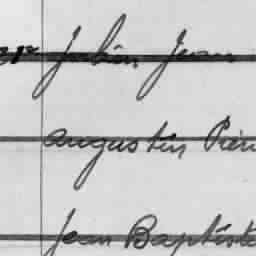 Julien Jean
Augustin Pierr
Jean Baptiste